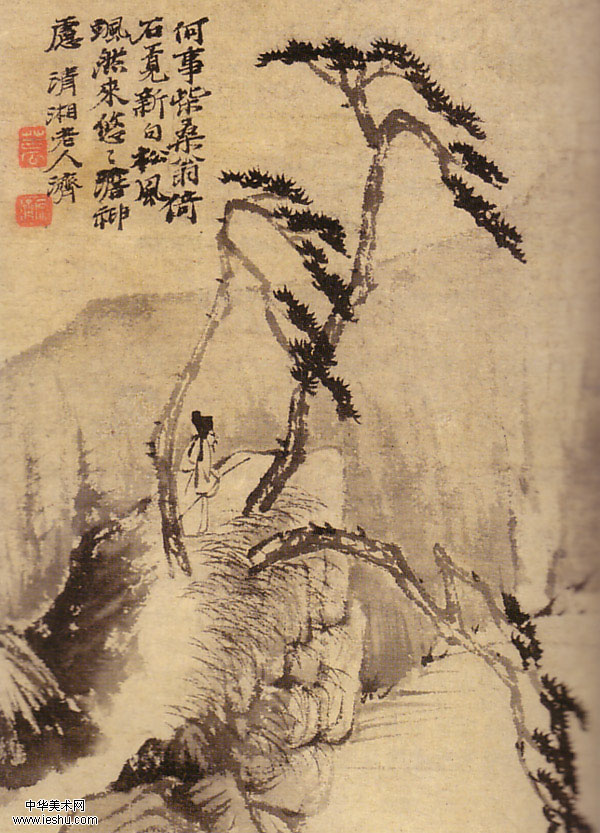 何事柴桑翁倚
石覓新句松風
颯然來悠〻澹神
慮 清湘老人濟
中华美术网
www.ieshu.com